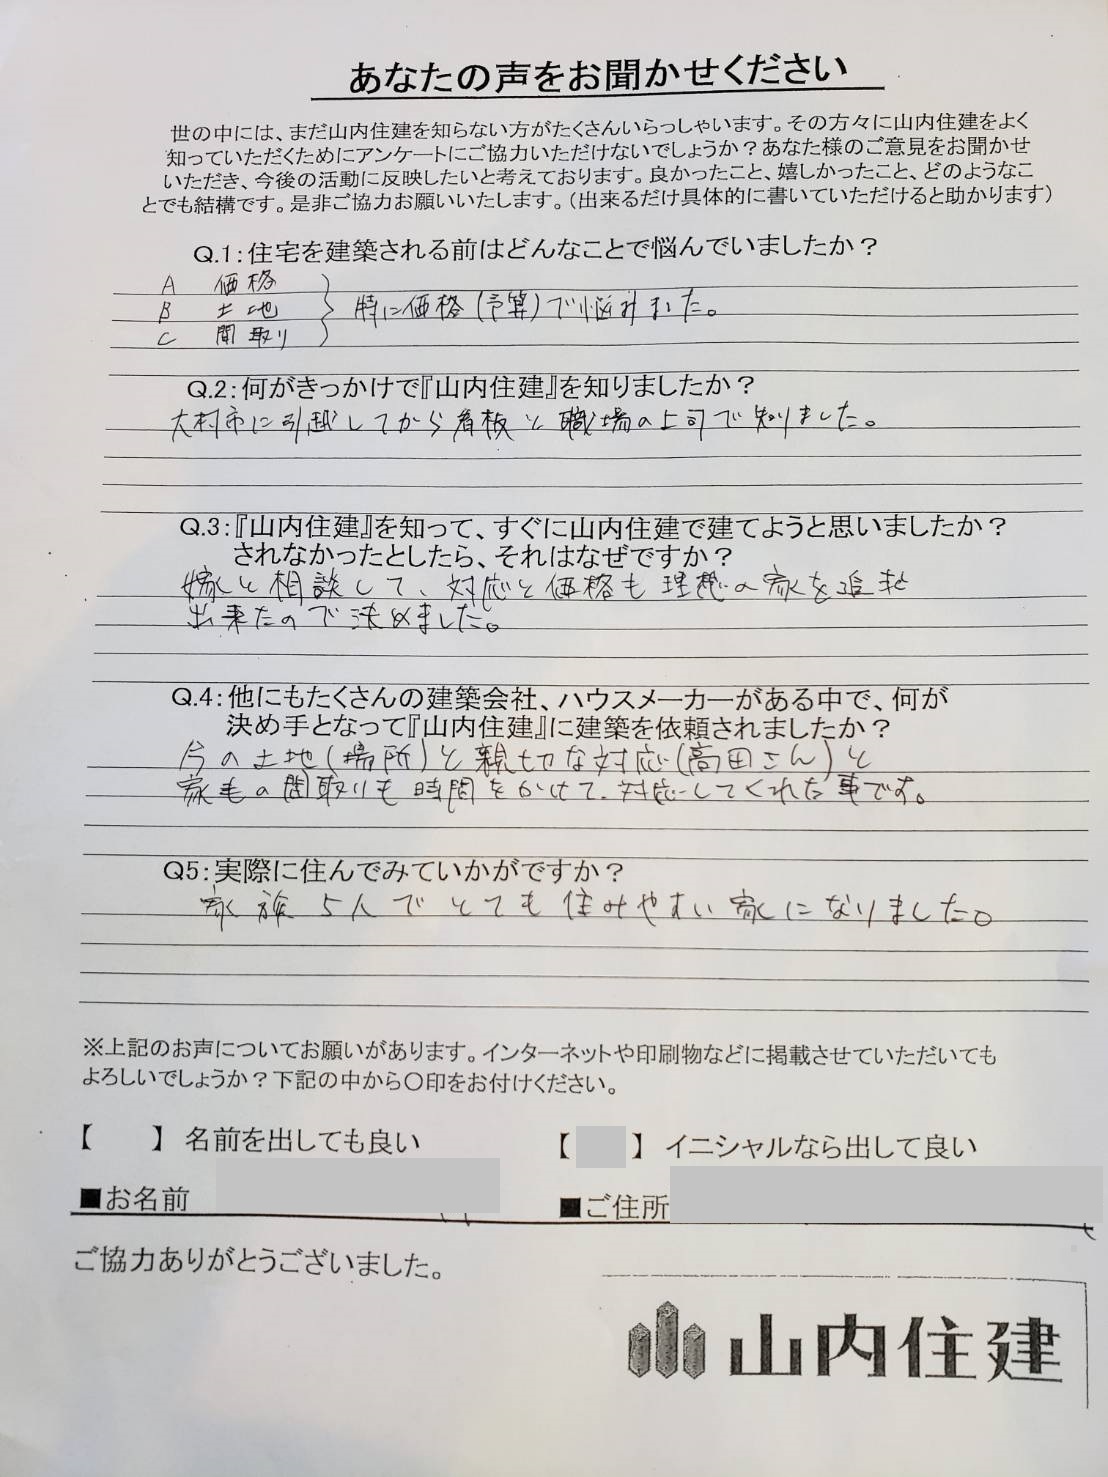 あなたの声をお聞かせください
世の中には、まだ山内住建を知らない方がたくさんいらっしゃいます。その方々に山内住建をよく
知っていただくためにアンケートにご協力いただけないでしょうか？あなた様のご意見をお聞かせ
いただき、今後の活動に反映したいと考えております。良かったこと、嬉しかったこと、どのようなこ
とでも結構です。是非ご協力お願いいたします。（出来るだけ具体的に書いていただけると助かります）
Q.1：住宅を建築される前はどんなことで悩んでいましたか？
A 価格
B 土地 特に価格(予算)で悩みました。
C 間取り
Q.2：何がきっかけで『山内住建』を知りましたか？
大村市に引越してから看板と職場の上司で知りました。
Q.3：『山内住建』を知って、すぐに山内住建で建てようと思いましたか？
されなかったとしたら、それはなぜですか？
嫁と相談して、対応と価格も理想の家を追求
出来たので決めました。
Q.4：他にもたくさんの建築会社、ハウスメーカーがある中で、何が
決め手となって『山内住建』に建築を依頼されましたか？
今の土地(場所)と親切な対応(高田さん)と
家の間取りも時間をかけて、対応してくれた事です。
Q5：実際に住んでみていかがですか？
家族5人でとても住みやすい家になりました。
※上記のお声についてお願いがあります。インターネットや印刷物などに掲載させていただいても
よろしいでしょうか？下記の中から○印をお付けください。
【　　】 名前を出しても良い 【　　】 イニシャルなら出して良い
■お名前 ■ご住所
ご協力ありがとうございました。
山内住建